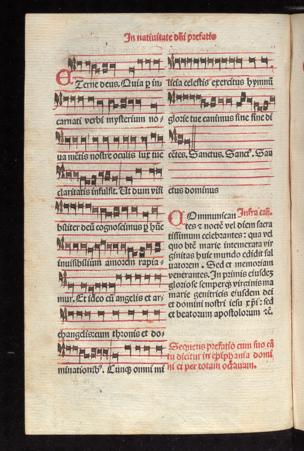 In natiuitate dñi prefatio
Eterne deus. Quia p in
carnati verbi mysterium no-
ua mētis nostre oculis lux tue
claritatis infulsit. Ut dum visi
biliter deū cognoscimus p hūc
inuisibilium amorem rapia-
mur. Et ideo cū angelis et ar-
changelis: cum thronis et do-
minationibꝰ. Cunqꝫ omni mi
licia celestis exercitus hymnū
glorie tue canimus sine fine di
cētes. Sanctus. Sanctꝰ. San
ctus dominus
Infra cań.
COmmunican
tes ⁊ noctē vel diem sacra
tissimum celebrantes: qua vel
quo btē marie intemerata vir
ginitas huic mundo edidit sal
uatorem. Sed et memoriam
venerantes. In primis eiusdeꝫ
gloriose semperqꝫ virginis ma
marie genitricis eiusdem dei
et domini nostri iesu xp̄i: sed
et beatorum apostolorum ⁊č.
Sequens prefatio cum suo cā
tu dicitur in epiphania domi
ni et per totam octauam.